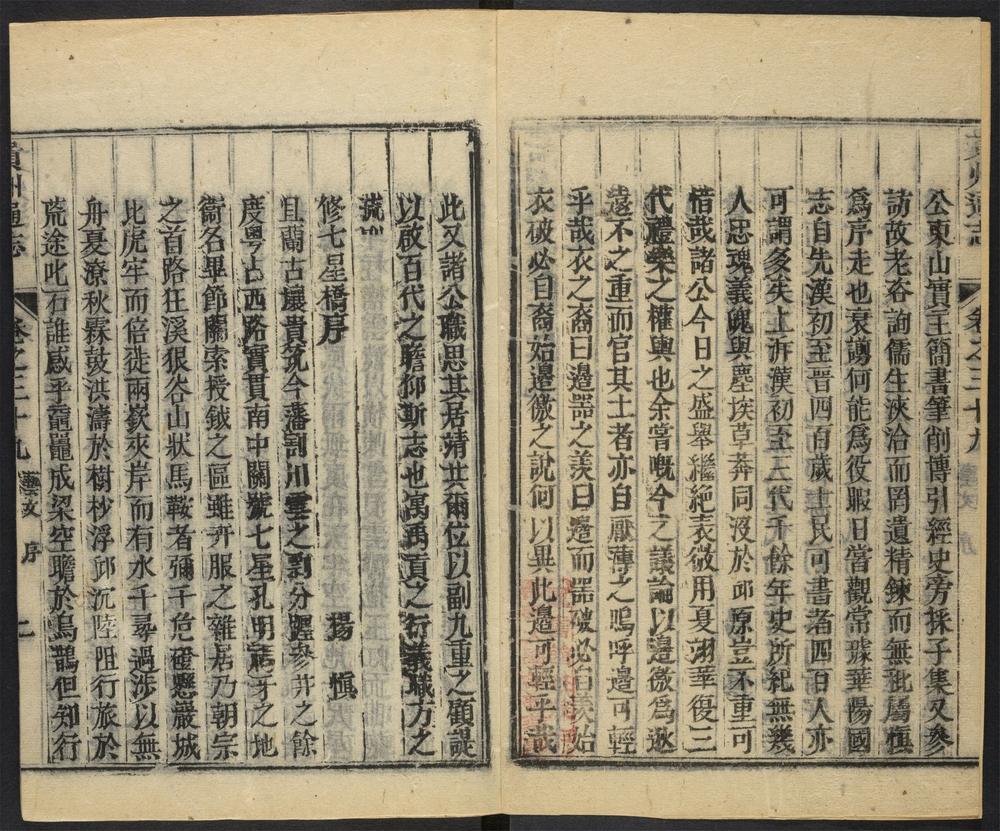 公東山實主簡書筆削博引經史旁採子集又參
訪故老咨詢儒生浹洽而罔遺精鍊而無玭屬慎
爲序走也衰謭何能爲役暇日嘗觀常璩華陽國
志自先漢初至晉四百歲士民可書者四百人亦
可謂多矣上泝漢初至三代千餘年史所紀無幾
人忠魂義魄與塵埃草莽同沒於邱原豈不重可
惜哉諸公今日之盛舉繼絕表微用夏翊華復三
代禮樂之權輿也余嘗嘅今之議論以邊徼爲
遠不之重而官其土者亦自厭薄之嗚呼邊可輕
乎哉衣之裔曰邊器之羨曰邊而器破必自羨始
衣破必自裔始邊徼之說何以異此邊可輕乎哉
貴州通志
卷之三十九 藝文 序
此又諸公職思其居靖共爾位以副九重之顧諟
以啟百代之瞻仰斯志也寓禹貢之行議職方之
修七星橋序
楊慎
且蘭古壤貴筑今藩割川雲之剖分躔參井之餘
度粵占西路實貫南中關號七星孔明禡牙之地
衢名畢節關索授鉞之區雖卉服之雜居乃朝宗
之首路狂溪狠谷山狀馬鞍者彌千危磴懸巖城
比虎牢而倍徙兩嶔夾岸而有水千尋過涉以無
舟夏潦秋霖鼓洪濤於樹杪浮邱沉陸阻行旅於
荒途叱石誰感乎黿鼉成梁空瞻於烏鵲但知行
貴州通志
卷之三十九 藝文 序 二